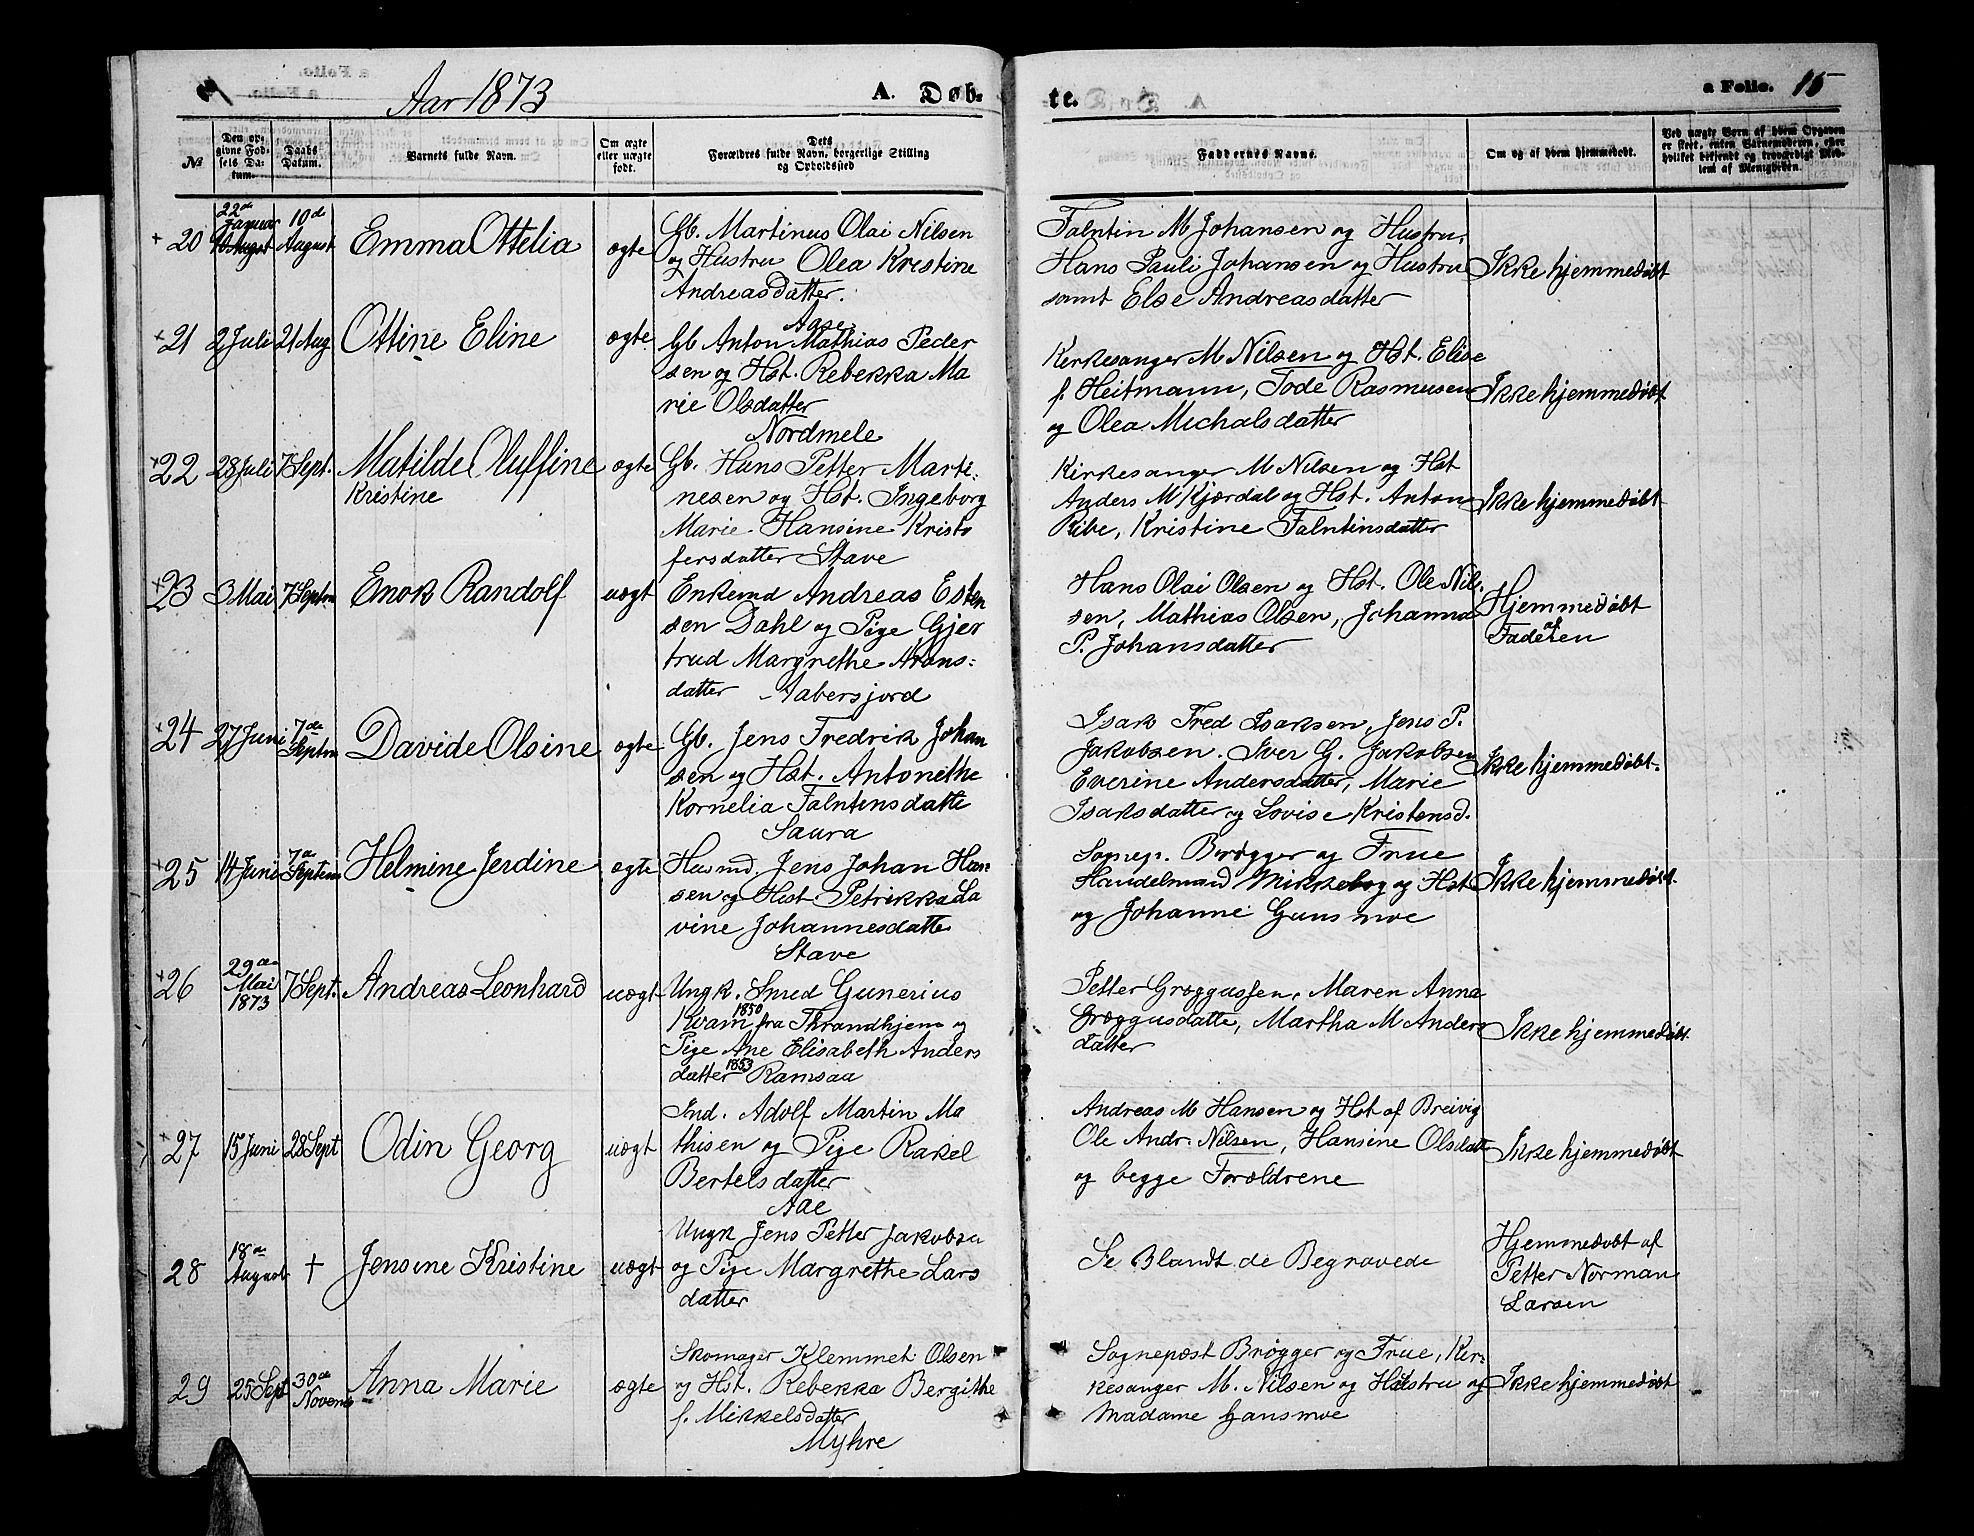 Aar 1873
A. Døb-
te.
a Folio. 15
№
Den opgivne Fødsels Datum.
Daabs Datum.
Barnets fulde Navn.
Om ægte eller uægte født.
Dets Forældres fulde Navn, borgerlige Stilling og Opholdssted
Faddernes Navne.
Om og af hvem hjemmedøbt.
Ved uægte Børn af hvem Opgaven er skeet, enten Barnemoderen, eller hvilket bekjendt og troværdigt Medlem af Menigheden.
+ 20
22de Januar
10 August
10de August
Emma Ottelia
ægte
Gb. Martinus Olai Nilsen
og Hustru Olea Kristine
Andreasdatter.
Aase
Falntin M Johansen og Hustru,
Hans Pauli Johansen og Hustru
samt Else Andreasdatter
Ikke hjemmedøbt
+21
2 Juli
21 Aug
Ottine Eline
ægte
Gb Anton Mathias Peder
sen og Hst. Rebekka Ma
rie Olsdatter
Nordmele
Kirkesanger M Nilsen og Hst. Elise
f. Heitmann, Tode Rasmusen
og Olea Michalsdatter
Ikke hjemmedøbt
+22
28 Juli
7 Sept.
Matilde Oluffine
Kristine
ægte
Gb. Hans Petter Marti-
nesen og Hst. Ingeborg
Marie Hansine Kristo
fersdatter Stave
Kirkesanger M Nilsen og Hst
Anders M Kjærdal og Hst. Anton
Ribe, Kristine Falntinsdatter
Ikke hjemmedøbt
+23
3 Mai
7 Septm
Enok Randolf
uægt
Enkemd Andreas Esten
sen Dahl og Pige Gjer
trud Margrethe Arons-
datter Aabersjord
Hans Olai Olsen og Hst. Ole Nil-
sen, Mathias Olsen, Johanna
P. Johansdatter
Hjemmedøbt
af
Faderen
+24
27 Juni
7de Septm
Davide Olsine
ægte
Gb. Jens Fredrik Johan
sen og Hst. Antonethe
Kornelia Falntensdatte
Saura
Isak Fred Isaksen, Jens P.
Jakobsen. Iver G. Jakobsen
Everine Andersdatter, Marie
Isaksdatter og Lovise Kristensd.
Ikke hjemmedøbt.
+25
14 Juni
7de Septem
Helmine Jerdine
ægte
Husmd. Jens Johan Han
sen og Hst. Petrikka La
vine Johannesdatte
Stave
Sognep. Brøgger og Frue
Handelmand Mikkelborg og Hst
og Johanne Gunsmoe
Ikke hjemmedøbt.
+26
29de Mai 1873
7 Sept.
Andreas Leonhard
uægt
Ungk. Smed Gunerius
1850
Kvam fra Thrandhjem og
Pige Ane Elisabeth Anders
1853
datter Ramsaa
Petter Græggussen, Maren Anna
Græggusdatte, Martha M Anders
datter
Ikke hjemmedøbt.
+27
15 Juni
28 Sept
Odin Georg
uægt
Ind. Adolf Martin Ma
thisen og Pige Rakel
Bertelsdatter
Aae
Andreas M Hansen og Hst af Breivig
Ole Andr. Nilsen, Hansine Olsdatte
og begge Forældrene
Ikke hjemmedøbt
28
18de August
†
Jensine Kristine
uægt
Ungk Jens Petter Jakobsen
og Pige Margrethe Lars
datter
Se Blandt de Begravede
Hjemmedøbt af
Petter Norman
Larsen
29
25 Sept
30de Novemb
Anna Marie
ægte
Skomager Klemmet Olsen
og Hst. Rebekka Bergithe
f. Mikkelsdatter
Myhre
Sognepæst Brøgger og Frue, Kir-
kesanger M. Nilsen og Hustru og
Madame Hansmoe
Ikke hjemmedøbt